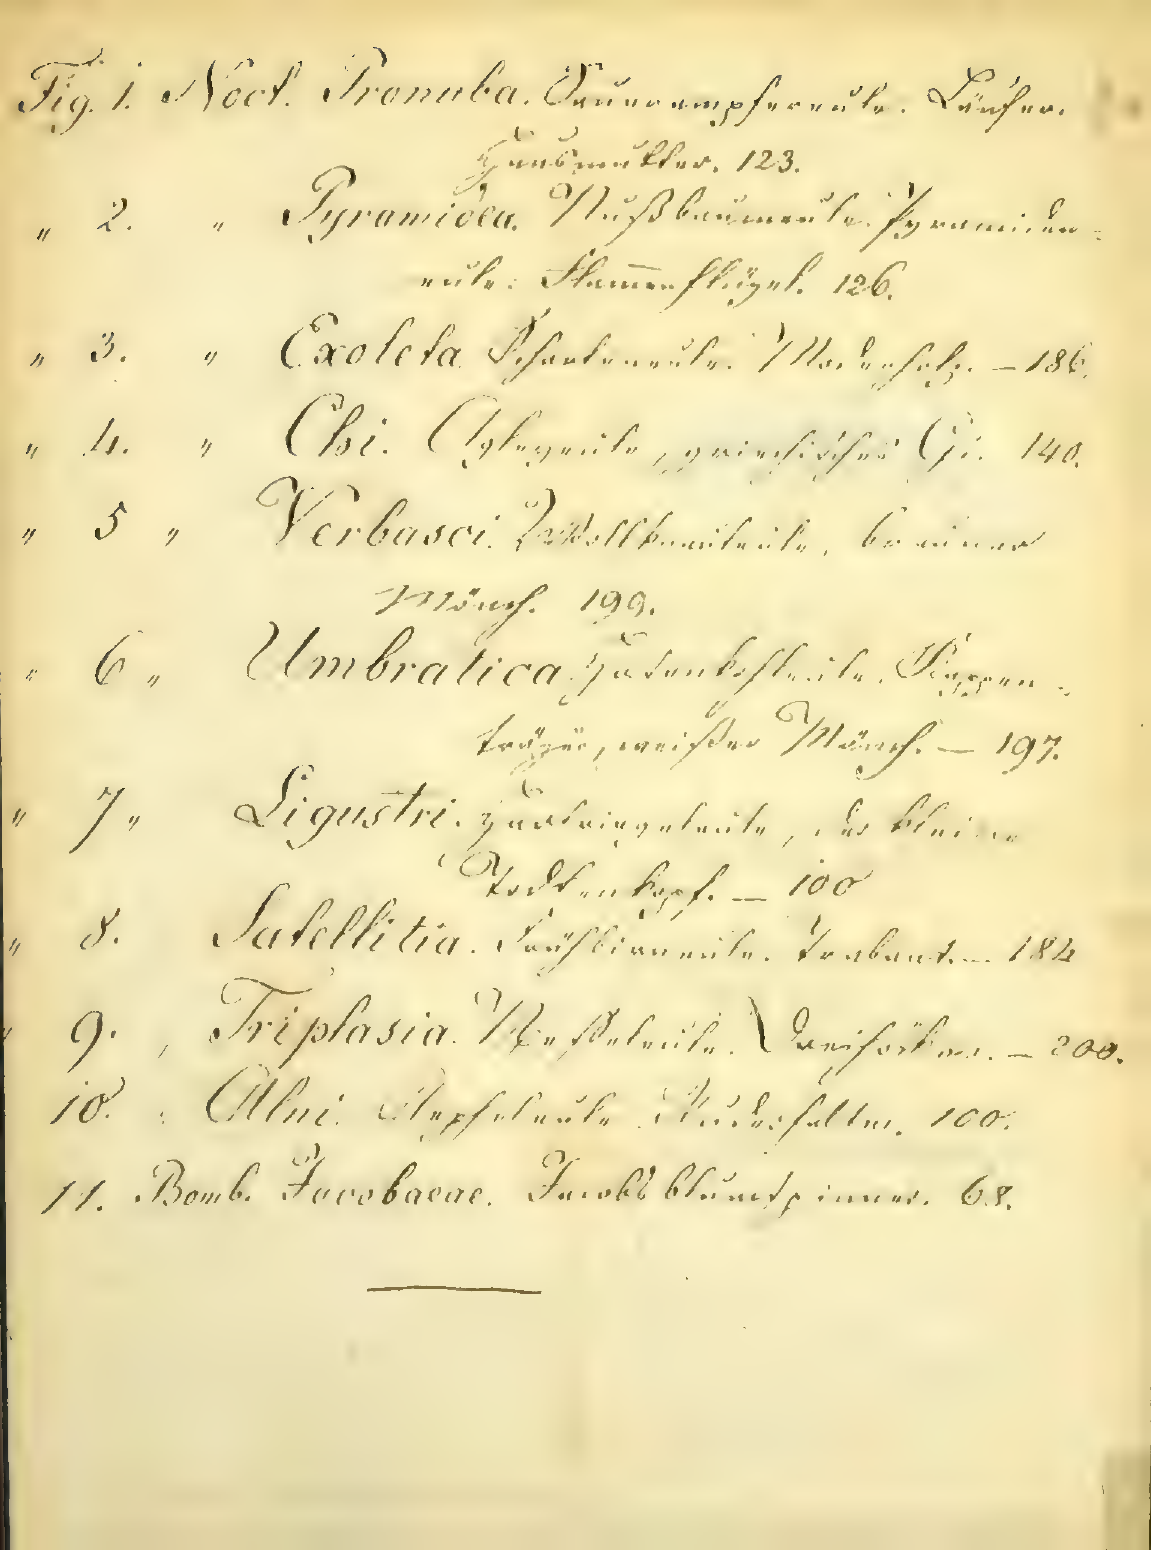 Fig. 1. Noct. Pronuba. Sauerampfereule. Läufer.
Hausmutter. 123.
" 2. " Pyramidea. Nußbaumeule. Pyramiden-
eule. Flam̅enflügel. 126.
" 3. " Exoleta. Scharteneule. Moderholz. — 186.
" 4. " Chi. Agleyeule, griechisches Chi. 140.
" 5 " Verbasci. Wollkrauteule, brauner
Mönch. 199.
" 6 " Umbratica. Kappen-
träger, weißer Mönch. — 197.
" 7 " Ligustri. Hartriegeleule, der kleine
Todtenkopf. — 100
" 8. Satellitia. Frühbirneule. Trabant. — 184
" 9. , Triplasia. Nesseleule. Dreihöcker. — 200.
10. " Alni. Aepfeleule. Ruderfalter. 100.
11. Bomb. Jacobaeae. Jacobsblumspinner. 68.